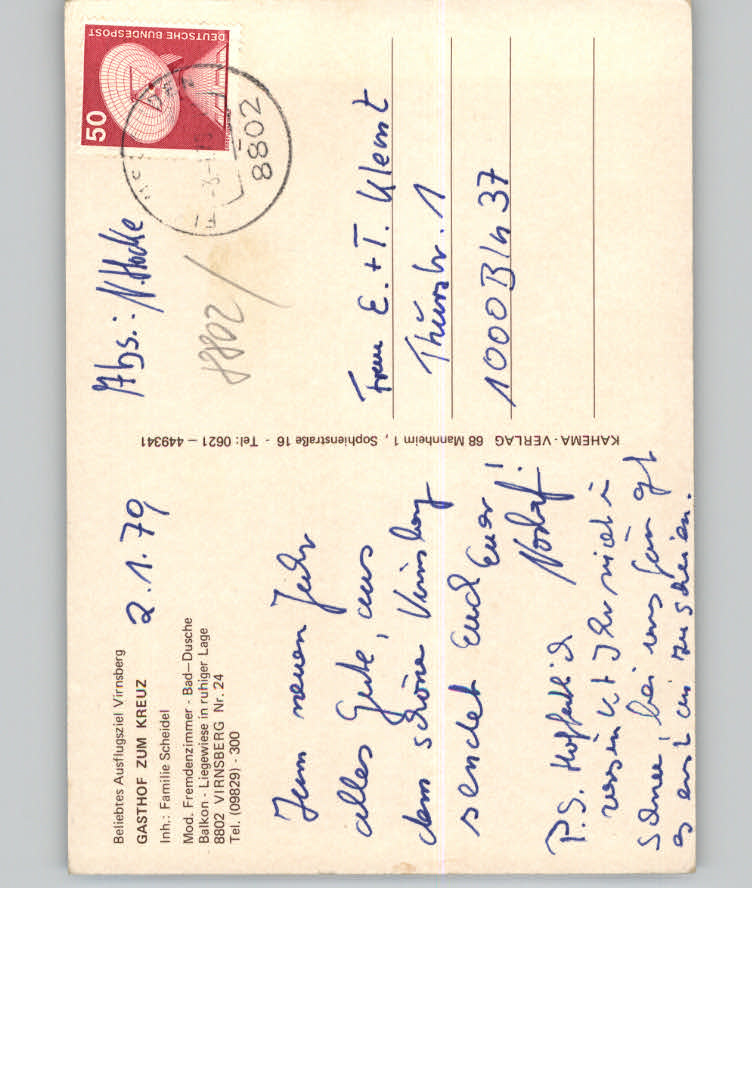 Beliebtes Ausflugsziel Virnsberg
GASTHOF ZUM KREUZ
Inh.: Familie Scheidel
Mod. Fremdenzimmer - Bad—Dusche
Balkon - Liegewiese in ruhiger Lage
8802 VIRNSBERG Nr. 24
Tel. (09829) - 300
2.1.79
Zum neuen Jahr
alles Gute, aus
dem schöne Virnsberg
sendet Euch Euer
P.S. Hoffentlich
versinkt Ihr nicht im
Schnee, bei uns
es erst an zu schneien.
KAHEMA-VERLAG 68 Mannheim 1, Sophienstraße 16 - Tel: 0621 — 449341
Abs.: N.
8802
DEUTSCHE BUNDESPOST
50
8802
E. + T. Klemt
1
1000 Bln 37